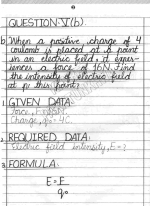 QUESTION-V(b).
b) When a positive charge of 4
coulomb is placed at a point
in an electric field, it exper-
iences a force of 16N. Find
the intensity of electric field
at this point?
1. GIVEN DATA:
Force, F=16N.
Charge, q₀= 4C.
2. REQUIRED DATA:
Electric field intensity, E=?
3. FORMULA:
E = F
q₀